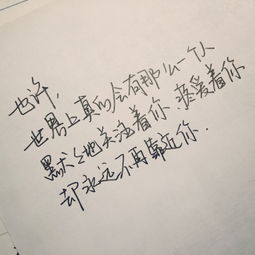 也许,
世界上真的会有那么一个人
默々地关注着你.疼爱着你
却永远不再靠近你.